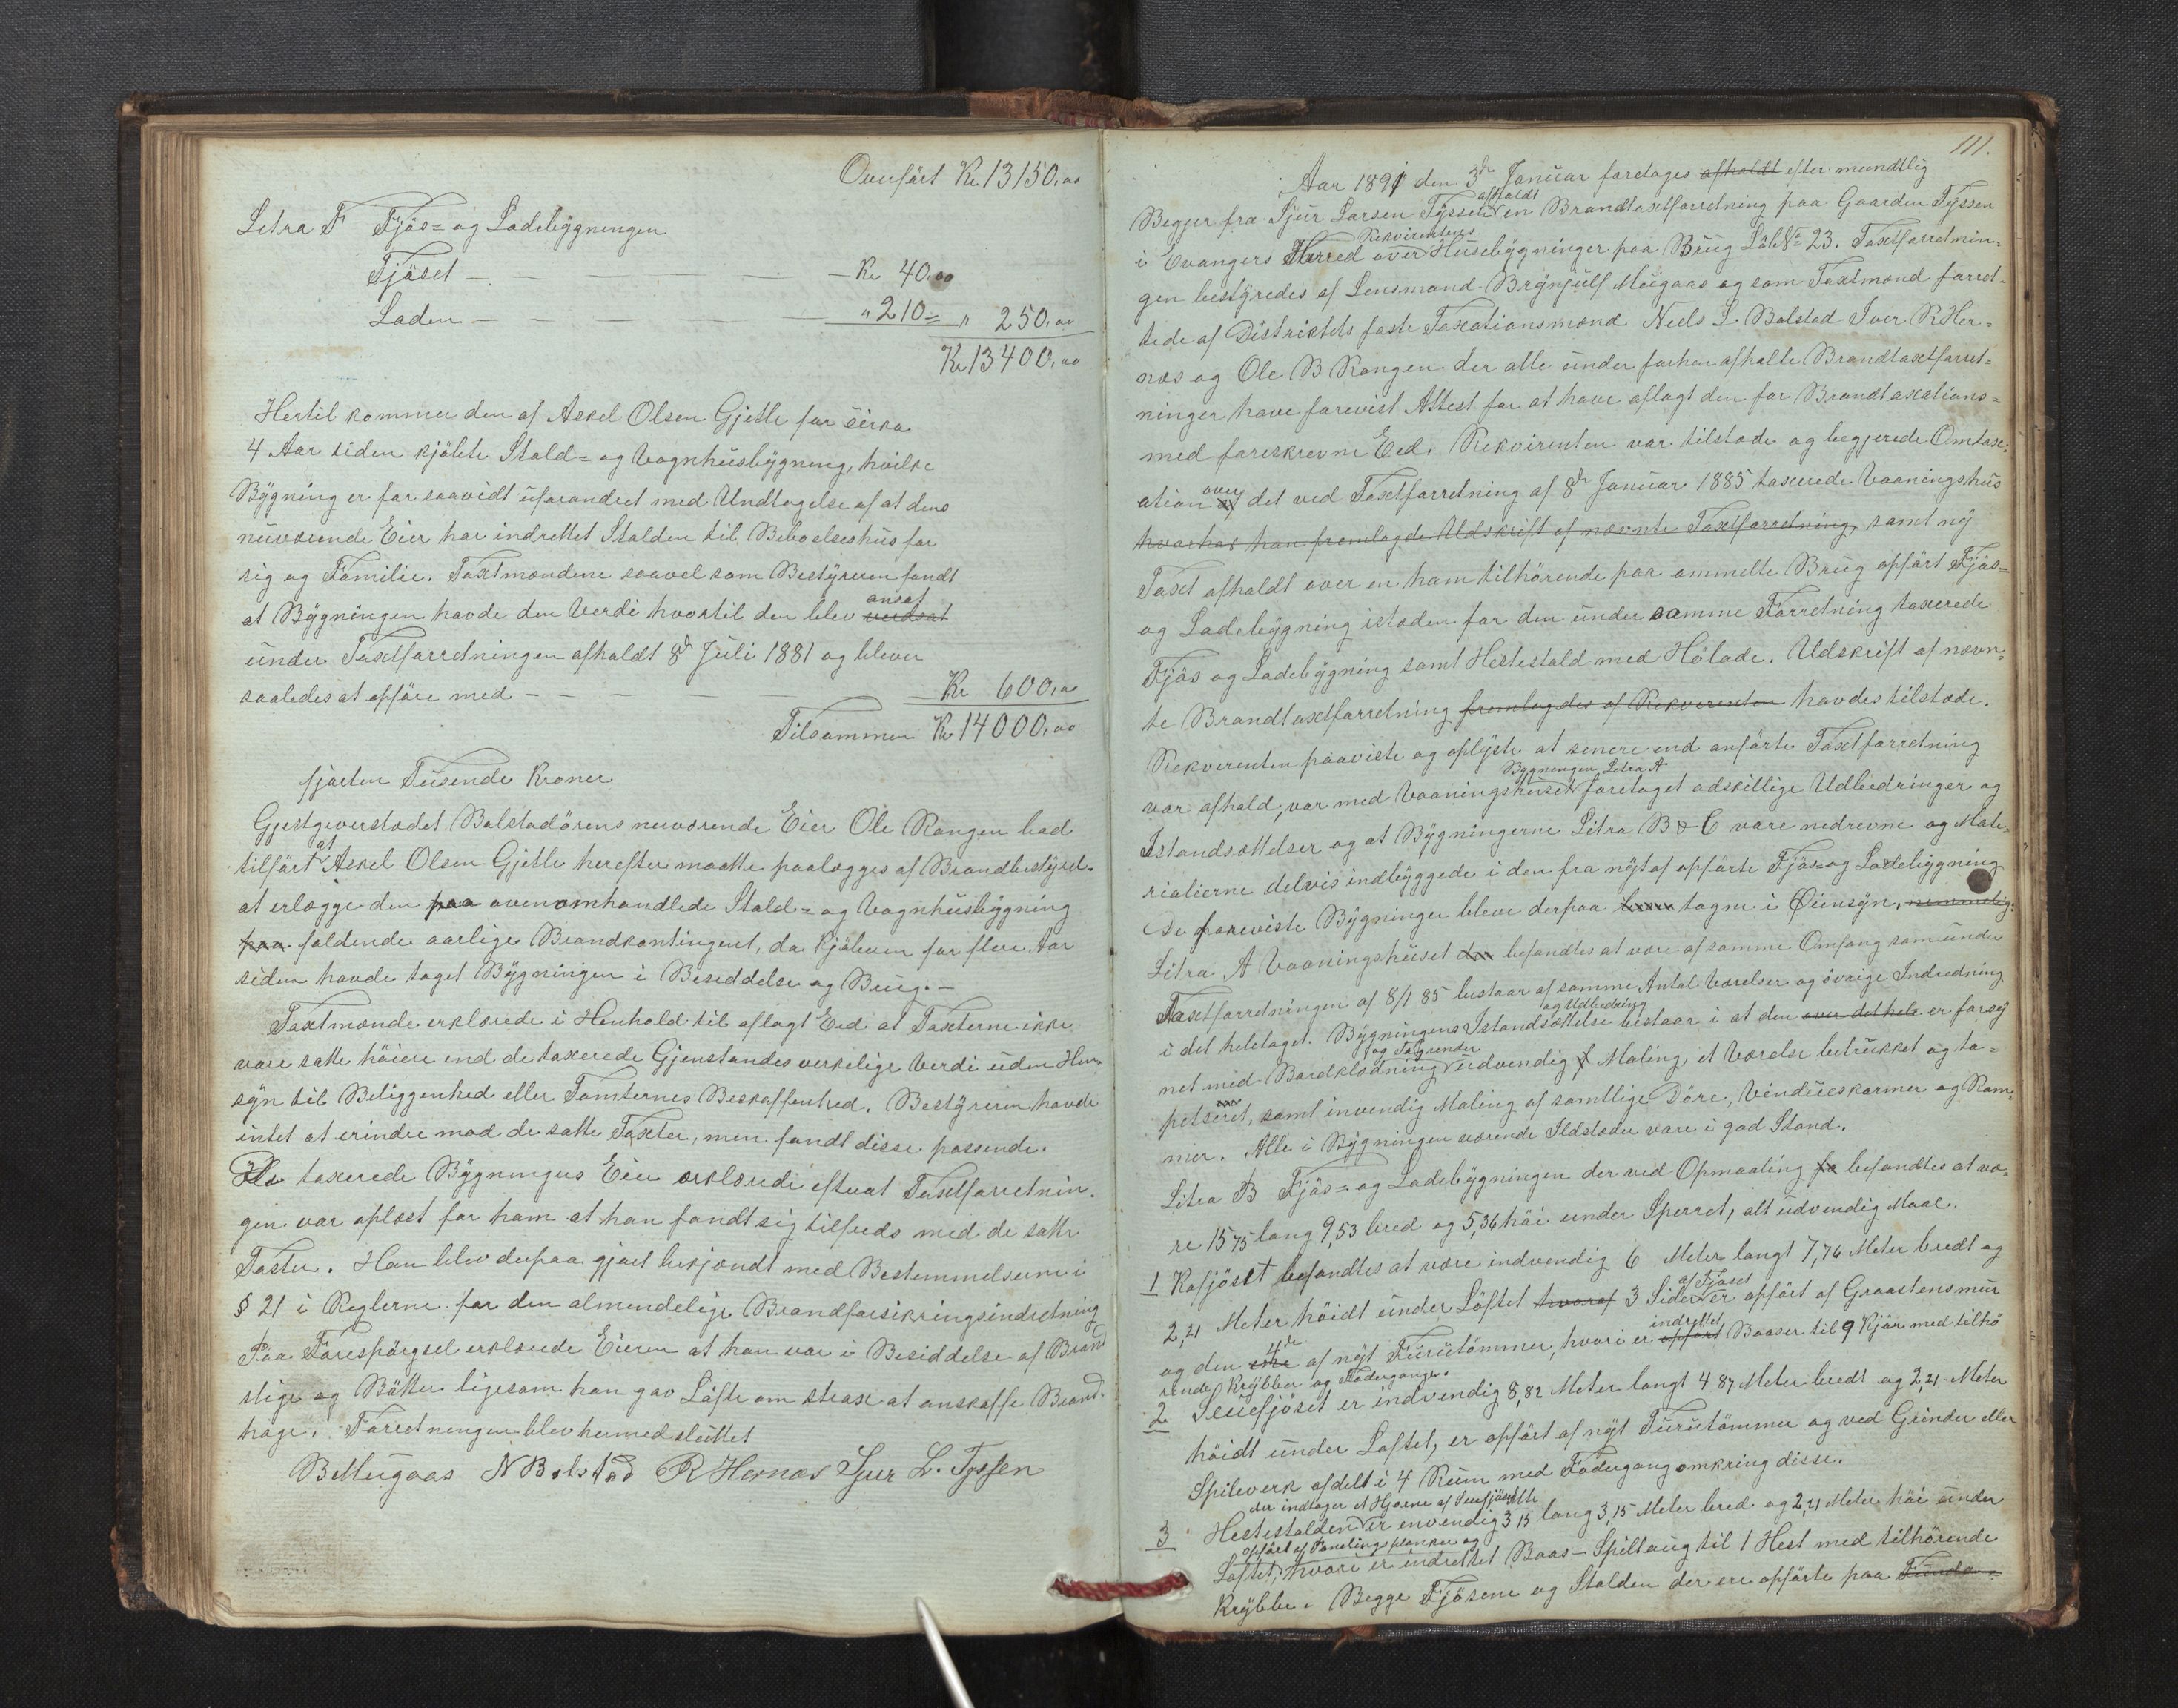 Overført Kr 13150,00
Litra F Fjøs- og Ladebygningen
Fjøset — — — — Kr 40,00
Laden — — — — " 210 = " 250,00
Kr 13400,00
Hertil kommer den af Askel Olsen Gjelle for cirka
4 Aar siden kjøbte Stald- og Vognhusbygning, hvilke
Bygning er for saavidt uforandret med Undtagelse af at dens
nuværende Eier har indrettet Stalden til Beboelseshus for
sig og Familie. Taxtmændene saavel som Bestyreren fandt
at Bygningen havde den Verdi hvortil den blev verdsat ansat
under Taxtforretningen afholdt 8de Juli 1881 og bliver
saaledes at opføre med — — — Kr 600,00
Tilsammen Kr 14000,00
fjorten Tusende Kroner
Gjestgiverstedet Bolstadørens nuværende Eier Ole Rongen bad
tilført at Askel Olsen Gjelle herefter maatte paalægges af Brandbestyrel.
at erlægge den paa ovenomhandlede Stald- og Vognhusbygning
paa faldende aarlige Brandkontingent, da Kjøberen for flere Aar
siden havde taget Bygningen i Besiddelse og Brug. —
Taxtmændene erklærede i Henhold til aflagt Eed at Taxterne ikke
vare satte høiere end de taxerede Gjenstandes verkelige Verdi uden Hen-
syn til Beliggenhed eller Tomternes Beskaffenhed. Bestyreren havde
intet at erindre mod de satte Taxter, men fandt disse passende.
De taxerede Bygningers Eier erklærede efterat Taxtforretnin-
gen var oplæst for ham at han fandt sig tilfreds med de satte
Taxter. Han blev derpaa gjort bekjendt med Bestemmelserne i
§ 21 i Reglerne for den almendelige Brandforsikringsindretning
Paa Forespørgsel erklærede Eieren at han var i Besiddelse af Brand
stige og Bøtter ligesom han gav Løfte om strax at anskaffe Brand-
hage. Forretningen blev hermed sluttet
BMugaas N Bolstad R Hernæs Sjur L. Tyssen
111.
Aar 1891 den 3de Januar foretoges afholdt efter mundtlig
Begjer fra Sjur Larsen Tyssen afholdt en Brandtaxtforretning paa Gaarden Tyssen
i Evangers Herred over Rekvirentens Husebygninger paa Brug LøbNo 23. Taxtforretnin-
gen bestyredes af Lensmand Brynjulf Mugaas og som Taxtmænd forret-
tede af Distriktets faste Taxationsmænd Niels L. Bolstad Iver R Her-
næs og Ole B Rongen der alle under forhen afholte Brandtaxtforret-
ninger have forevist Attest for at have aflagt den for Brandtaxations-
mænd foreskrevne Eed. Rekvirenten var tilstede og begjerede Omtax-
ation af over det ved Taxtforretning af 8de Januar 1885 taxerede Vaaningshus
hvorhos han fremlagde Udskrift af nævnte Taxtforretning, samt ny
Taxt afholdt over en ham tilhørende paa ommelte Brug opført Fjøs-
og Ladebygning istæden for den under samme Forretning taxerede
Fjøs og Ladebygning samt Hestestald med Hølade. Udskrift af nævn-
te Brandtaxtforretning fremlagdes af Rekvirenten havdes tilstæde.
Rekvirenten paaviste og oplyste at senere end anførte Taxtforretning
var afhold, var med Vaaningshuset Bygningen Litra A foretaget adskillige Udbedringer og
Istandsættelser og at Bygningerne Litra B & C vare nedrevne og Mate-
rialierne delvis indbyggede i den fra nyt af opførte Fjøs- og Ladebygning
De foreviste Bygninger bleve derpaa tagne i Øiensyn, nemmelig:
Litra A Vaaningshuset den befandtes at være af samme Omfang som under
Taxtforretningen af 8/1 85 bestaar af samme Antal Værelser og øvrige Indredning
i det heletaget. Bygningens Istandsættelse og Udbedring bestaar i at den over det hele er forsy
net med Bordklædning og Tagrender udvendig Maling, et Værelse betrukket og ta-
petseret, samt invendig Maling af samtlige Døre, Vindueskarmer og Ram-
mer. Alle i Bygningen værende Ildstæder vare i god Stand.
Litra B Fjøs- og Ladebygningen der ved Opmaaling befandtes at væ-
re 15,75 lang 9,53 bred og 5,36 høi under Sperret, alt udvendig Maal.
1 Kofjøset befandtes at være indvendig 6 Meter langt 7,76 Meter bredt og
2,21 Meter høidt under Løftet hvoraf 3 Sider af Fjøset er opført af Graastensmur
og den 4de af nyt Furutømmer, hvori er opført indrettet Baaser til 9 Kjør med tilhø
rende Krybber og Fodergange.
2 Seuefjøset er indvendig 8,82 Meter langt 4 87 Meter bredt og 2,21 Meter
høidt under Loftet, er opført af nyt Furutømmer og ved Grinder eller
Spileverk afdelt i 4 Rum med Fodergang omkring disse.
3 Hestestalden der indtager et Hjørne af Seuefjøset er invendig 3 15 Mtr lang 3,15 Meter bred og 2,21 Meter høi under
Løftet, opført af Panelingsplanker og hvori er indrettet Baas-Spiltaug til 1 Hest med tilhørende
Krybbe. Begge Fjøsene og Stalden der ere opførte paa Funda-